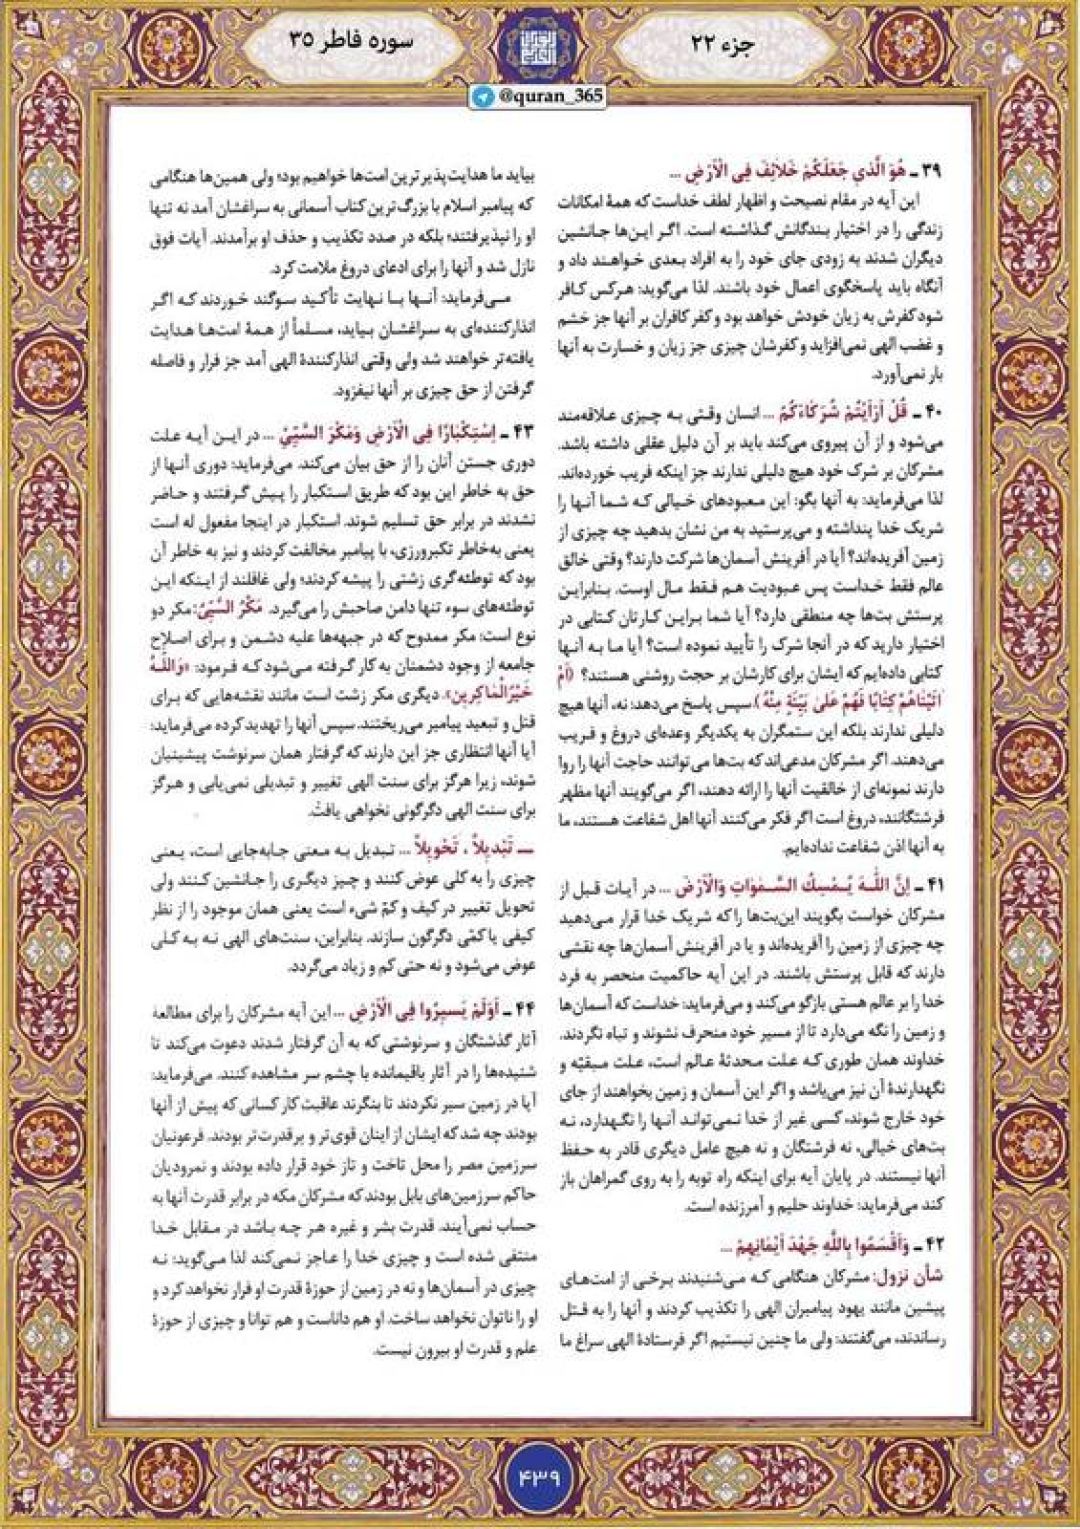 جزء ۲۲
سوره فاطر ۳۵
@quran_365
۳۹ ـ هُوَ الَّذي جَعَلَكُمْ خَلائِفَ فِي الْأَرْضِ ...
این آیه در مقام نصیحت و اظهار لطف خداست که همهٔ امکانات
زندگی را در اختیار بندگانش گذاشته است. اگر این‌ها جانشین
دیگران شدند به زودی جای خود را به افراد بعدی خواهند داد و
آنگاه باید پاسخگوی اعمال خود باشند. لذا می‌گوید: هرکس کافر
شود کفرش به زیان خودش خواهد بود و کفر کافران بر آنها جز خشم
و غضب الهی نمی‌افزاید و کفرشان چیزی جز زیان و خسارت به آنها
بار نمی‌آورد.
۴۰ ـ قُلْ أَرَأَيْتُمْ شُرَكَاءَكُمُ ... انسان وقتی به چیزی علاقه‌مند
می‌شود و از آن پیروی می‌کند باید بر آن دلیل عقلی داشته باشد.
مشرکان بر شرک خود هیچ دلیلی ندارند جز اینکه فریب خورده‌اند.
لذا می‌فرماید: به آنها بگو: این معبودهای خیالی که شما آنها را
شریک خدا پنداشته و می‌پرستید به من نشان بدهید چه چیزی از
زمین آفریده‌اند؟ آیا در آفرینش آسمان‌ها شرکت دارند؟ وقتی خالق
عالم فقط خداست پس عبودیت هم فقط مال اوست. بنابراین
پرستش بت‌ها چه منطقی دارد؟ آیا شما براین کارتان کتابی در
اختیار دارید که در آنجا شرک را تأیید نموده است؟ آیا ما به آنها
کتابی داده‌ایم که ایشان برای کارشان بر حجت روشنی هستند؟ (أَمْ
اتَيْنَاهُمْ كِتَابًا فَهُمْ عَلىٰ بَيِّنَةٍ مِنْهُ). سپس پاسخ می‌دهد: نه، آنها هیچ
دلیلی ندارند بلکه این ستمگران به یکدیگر وعده‌ای دروغ و فریب
می‌دهند. اگر مشرکان مدعی‌اند که بت‌ها می‌توانند حاجت آنها را روا
دارند نمونه‌ای از خالقیت آنها را ارائه دهند، اگر می‌گویند آنها مظهر
فرشتگانند، دروغ است اگر فکر می‌کنند آنها اهل شفاعت هستند، ما
به آنها اذن شفاعت نداده‌ایم.
۴۱ ـ إِنَّ اللَّهَ يُمْسِكُ السَّمٰوَاتِ وَالْأَرْضَ ... در آیات قبل از
مشرکان خواست بگویند این‌بت‌ها را که شریک خدا قرار می‌دهید
چه چیزی از زمین را آفریده‌اند و یا در آفرینش آسمان‌ها چه نقشی
دارند که قابل پرستش باشند. در این آیه حاکمیت منحصر به فرد
خدا را بر عالم هستی بازگو می‌کند و می‌فرماید: خداست که آسمان‌ها
و زمین را نگه می‌دارد تا از مسیر خود منحرف نشوند و تباه نگردند.
خداوند همان طوری که علت محدثهٔ عالم است، علت مبقیّه و
نگهدارندهٔ آن نیز می‌باشد و اگر این آسمان و زمین بخواهند از جای
خود خارج شوند، کسی غیر از خدا نمی‌تواند آنها را نگهدارد، نه
بت‌های خیالی، نه فرشتگان و نه هیچ عامل دیگری قادر به حفظ
آنها نیستند. در پایان آیه برای اینکه راه توبه را به روی گمراهان باز
کند می‌فرماید: خداوند حلیم و آمرزنده است.
۴۲ ـ وَأَقْسَمُوا بِاللَّهِ جَهْدَ أَيْمَانِهِمْ ...
شأن نزول: مشرکان هنگامی که می‌شنیدند برخی از امت‌های
پیشین مانند یهود پیامبران الهی را تکذیب کردند و آنها را به قتل
رساندند، می‌گفتند: ولی ما چنین نیستیم اگر فرستادهٔ الهی سراغ ما
بیاید ما هدایت‌پذیرترین امت‌ها خواهیم بود؛ ولی همین‌ها هنگامی
که پیامبر اسلام با بزرگ‌ترین کتاب آسمانی به سراغشان آمد نه تنها
او را نپذیرفتند؛ بلکه در صدد تکذیب و حذف او برآمدند. آیات فوق
نازل شد و آنها را برای ادعای دروغ ملامت کرد.
می‌فرماید: آنها با نهایت تأکید سوگند خوردند که اگر
انذارکننده‌ای به سراغشان بیاید، مسلماً از همهٔ امت‌ها هدایت
یافته‌تر خواهند شد ولی وقتی انذارکنندهٔ الهی آمد جز فرار و فاصله
گرفتن از حق چیزی بر آنها نیفزود.
۴۳ ـ اِسْتِكْبَارًا فِي الْأَرْضِ وَمَكْرَ السَّيِّئِ ... در این آیه علت
دوری جستن آنان را از حق بیان می‌کند. می‌فرماید: دوری آنها از
حق به خاطر این بود که طریق استکبار را پیش گرفتند و حاضر
نشدند در برابر حق تسلیم شوند. استکبار در اینجا مفعول له است
یعنی به‌خاطر تکبرورزی، با پیامبر مخالفت کردند و نیز به خاطر آن
بود که توطئه‌گری زشتی را پیشه کردند؛ ولی غافلند از اینکه این
توطئه‌های سوء تنها دامن صاحبش را می‌گیرد. مَكْرُ السَّيِّئِ: مکر دو
نوع است: مکر ممدوح که در جبهه‌ها علیه دشمن و برای اصلاح
جامعه از وجود دشمنان به کار گرفته می‌شود که فرمود: «وَاللَّهُ
خَيْرُ الْمَاكِرِينَ». دیگری مکر زشت است مانند نقشه‌هایی که برای
قتل و تبعید پیامبر می‌ریختند. سپس آنها را تهدید کرده می‌فرماید:
آیا آنها انتظاری جز این دارند که گرفتار همان سرنوشت پیشینیان
شوند، زیرا هرگز برای سنت الهی تغییر و تبدیلی نمی‌یابی و هرگز
برای سنت الهی دگرگونی نخواهی یافت.
ـــ تَبْدِيلاً ، تَحْوِيلاً ... تبدیل به معنی جابه‌جایی است، یعنی
چیزی را به کلی عوض کنند و چیز دیگری را جانشین کنند ولی
تحویل تغییر در کیف و کمّ شیء است یعنی همان موجود را از نظر
کیفی یا کمّی دگرگون سازند. بنابراین، سنت‌های الهی نه به کلی
عوض می‌شود و نه حتی کم و زیاد می‌گردد.
۴۴ ـ أَوَلَمْ يَسِيرُوا فِي الْأَرْضِ ... این آیه مشرکان را برای مطالعهٔ
آثار گذشتگان و سرنوشتی که به آن گرفتار شدند دعوت می‌کند تا
شنیده‌ها را در آثار باقیمانده با چشم سر مشاهده کنند. می‌فرماید:
آیا در زمین سیر نکردند تا بنگرند عاقبت کار کسانی که پیش از آنها
بودند چه شد که ایشان از اینان قوی‌تر و پرقدرت‌تر بودند. فرعونیان
سرزمین مصر را محل تاخت و تاز خود قرار داده بودند و نمرودیان
حاکم سرزمین‌های بابل بودند که مشرکان مکه در برابر قدرت آنها به
حساب نمی‌آیند. قدرت بشر و غیره هر چه باشد در مقابل خدا
منتفی شده است و چیزی خدا را عاجز نمی‌کند لذا می‌گوید: نه
چیزی در آسمان‌ها و نه در زمین از حوزهٔ قدرت او فرار نخواهد کرد و
او را ناتوان نخواهد ساخت. او هم داناست و هم توانا و چیزی از حوزهٔ
علم و قدرت او بیرون نیست.
۴۳۹